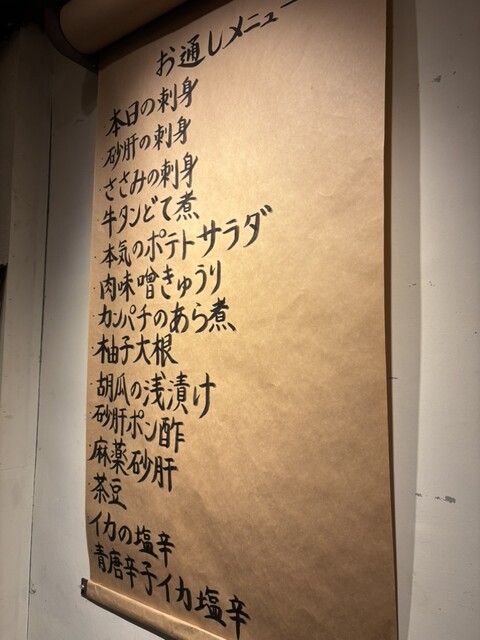 お通しメニュー
・本日の刺身
・砂肝の刺身
・ささみの刺身
・牛タンどて煮
・本気のポテトサラダ
・肉味噌きゅうり
・カンパチのあら煮
・柚子大根
・胡瓜の浅漬け
・砂肝ポン酢
・麻薬砂肝
・茶豆
・イカの塩辛
・青唐辛子イカ塩辛